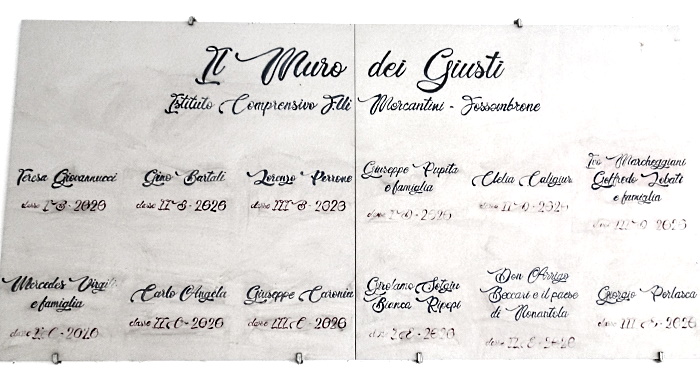 Il Muro dei Giusti
Istituto Comprensivo F.lli Mercantini - Fossombrone
Teresa Giovannucci
classe I B - 2020
Gino Bartali
classe II B - 2020
Lorenzo Perrone
classe III B - 2020
Giuseppe Pupita
e famiglia
classe I D - 2020
Clelia Caligiuri
classe II D - 2020
Ivo Marcheggiani
Goffredo
e famiglia
classe III D - 2020
Mercedes Virgili
e famiglia
classe I C - 2020
Carlo Angela
classe II C - 2020
Giuseppe Caronia
classe III C - 2020
Girolamo
Bianca Ripepi
classe I E - 2020
Don Arrigo
Beccari e il paese
di Nonantola
classe II E - 2020
Giorgio Perlasca
classe III - 2020